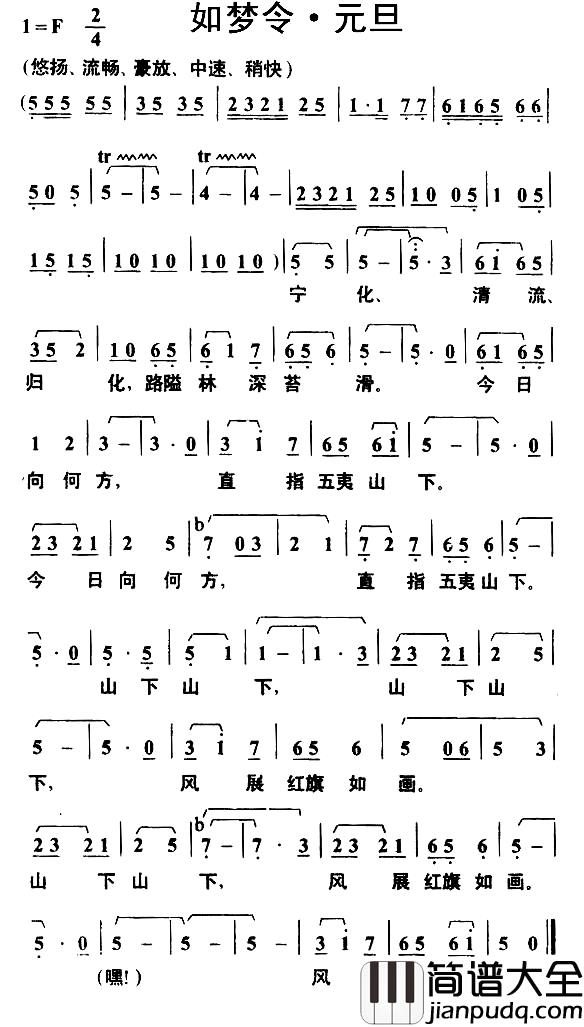 如梦令·元旦
1=F 2/4
(悠扬、流畅、豪放、中速、稍快)
(555 55 | 35 35 | 2321 25 | 1·1 77 | 6165 66 |
50 5 | 5 - | 5 - | 4 - | 4 - | 2321 25 | 10 05 | 1 05 |
tr tr
15 15 | 10 10 | 10 10 ) | 5 5 | 5 - | 5·3 | 61 65 |
宁 化、 清 流、
35 2 | 10 65 | 6 1 7 | 65 6 | 5 - | 5·0 | 61 65 |
归 化,路隘 林 深 苔 滑。 今 日
1 2 | 3 - | 3·0 | 3 i 7 | 65 6i | 5 - | 5·0 |
向 何 方, 直 指 五夷 山 下。
23 21 | 2 5 | b7 03 | 2 1 | 7 2 7 | 65 6 | 5 - |
今 日 向 何 方, 直 指 五夷 山 下。
5·0 | 5·5 | 5 1 | 1 - | 1·3 | 23 21 | 2 5 |
山 下 山 下, 山 下 山
5 - | 5·0 | 3 i 7 | 65 6 | 5 06 | 5 3 |
下, 风 展 红旗 如 画。
23 21 | 2 5 | b7 - | 7·3 | 23 21 | 65 6 | 5 - |
山 下 山 下, 风 展 红旗 如 画。
5·0 | 5 - | 5 - | 5 - | 5 - | 3 i 7 | 65 6i | 5 0 ‖
(嘿!) 风
简谱大全
jianpudq.com